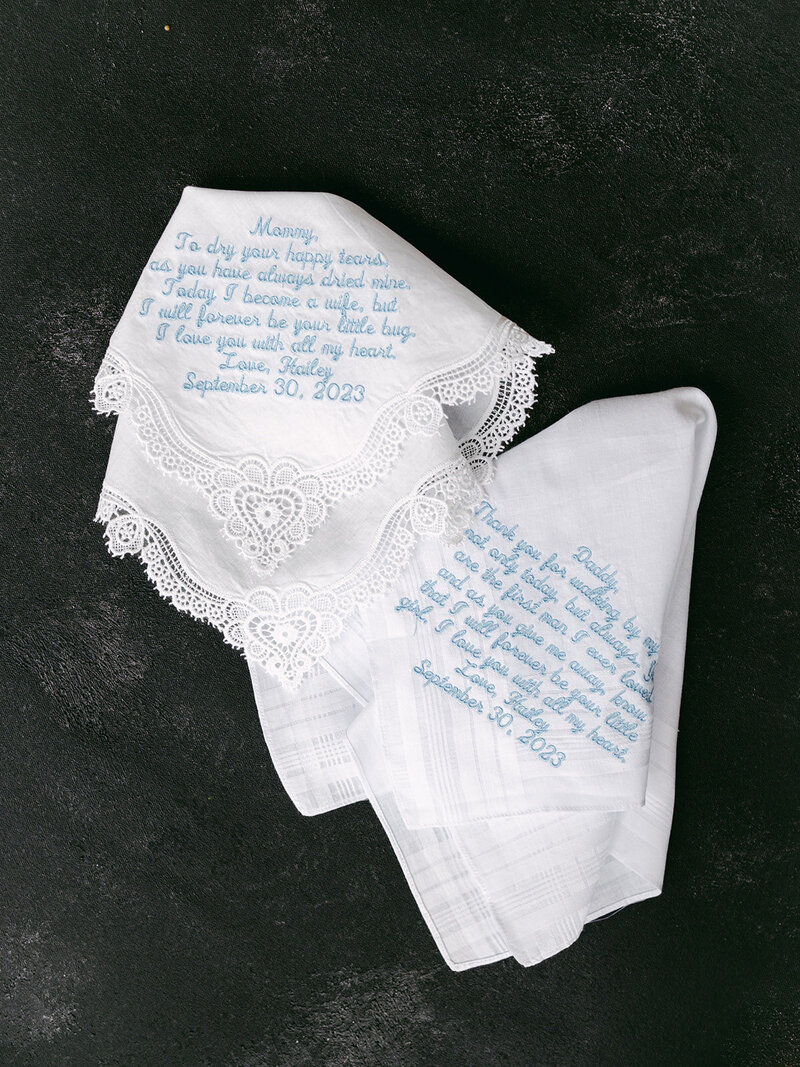 Mommy,
To dry your happy tears,
as you have always dried mine.
Today I become a wife, but
I will forever be your little bug.
I love you with all my heart.
Love, Hailey
September 30, 2023
Daddy,
Thank you for walking by my
not only today, but always.
are the first man I ever loved
and as you give me away, know
that I will forever be your little
girl. I love you with all my heart.
Love, Hailey
September 30, 2023